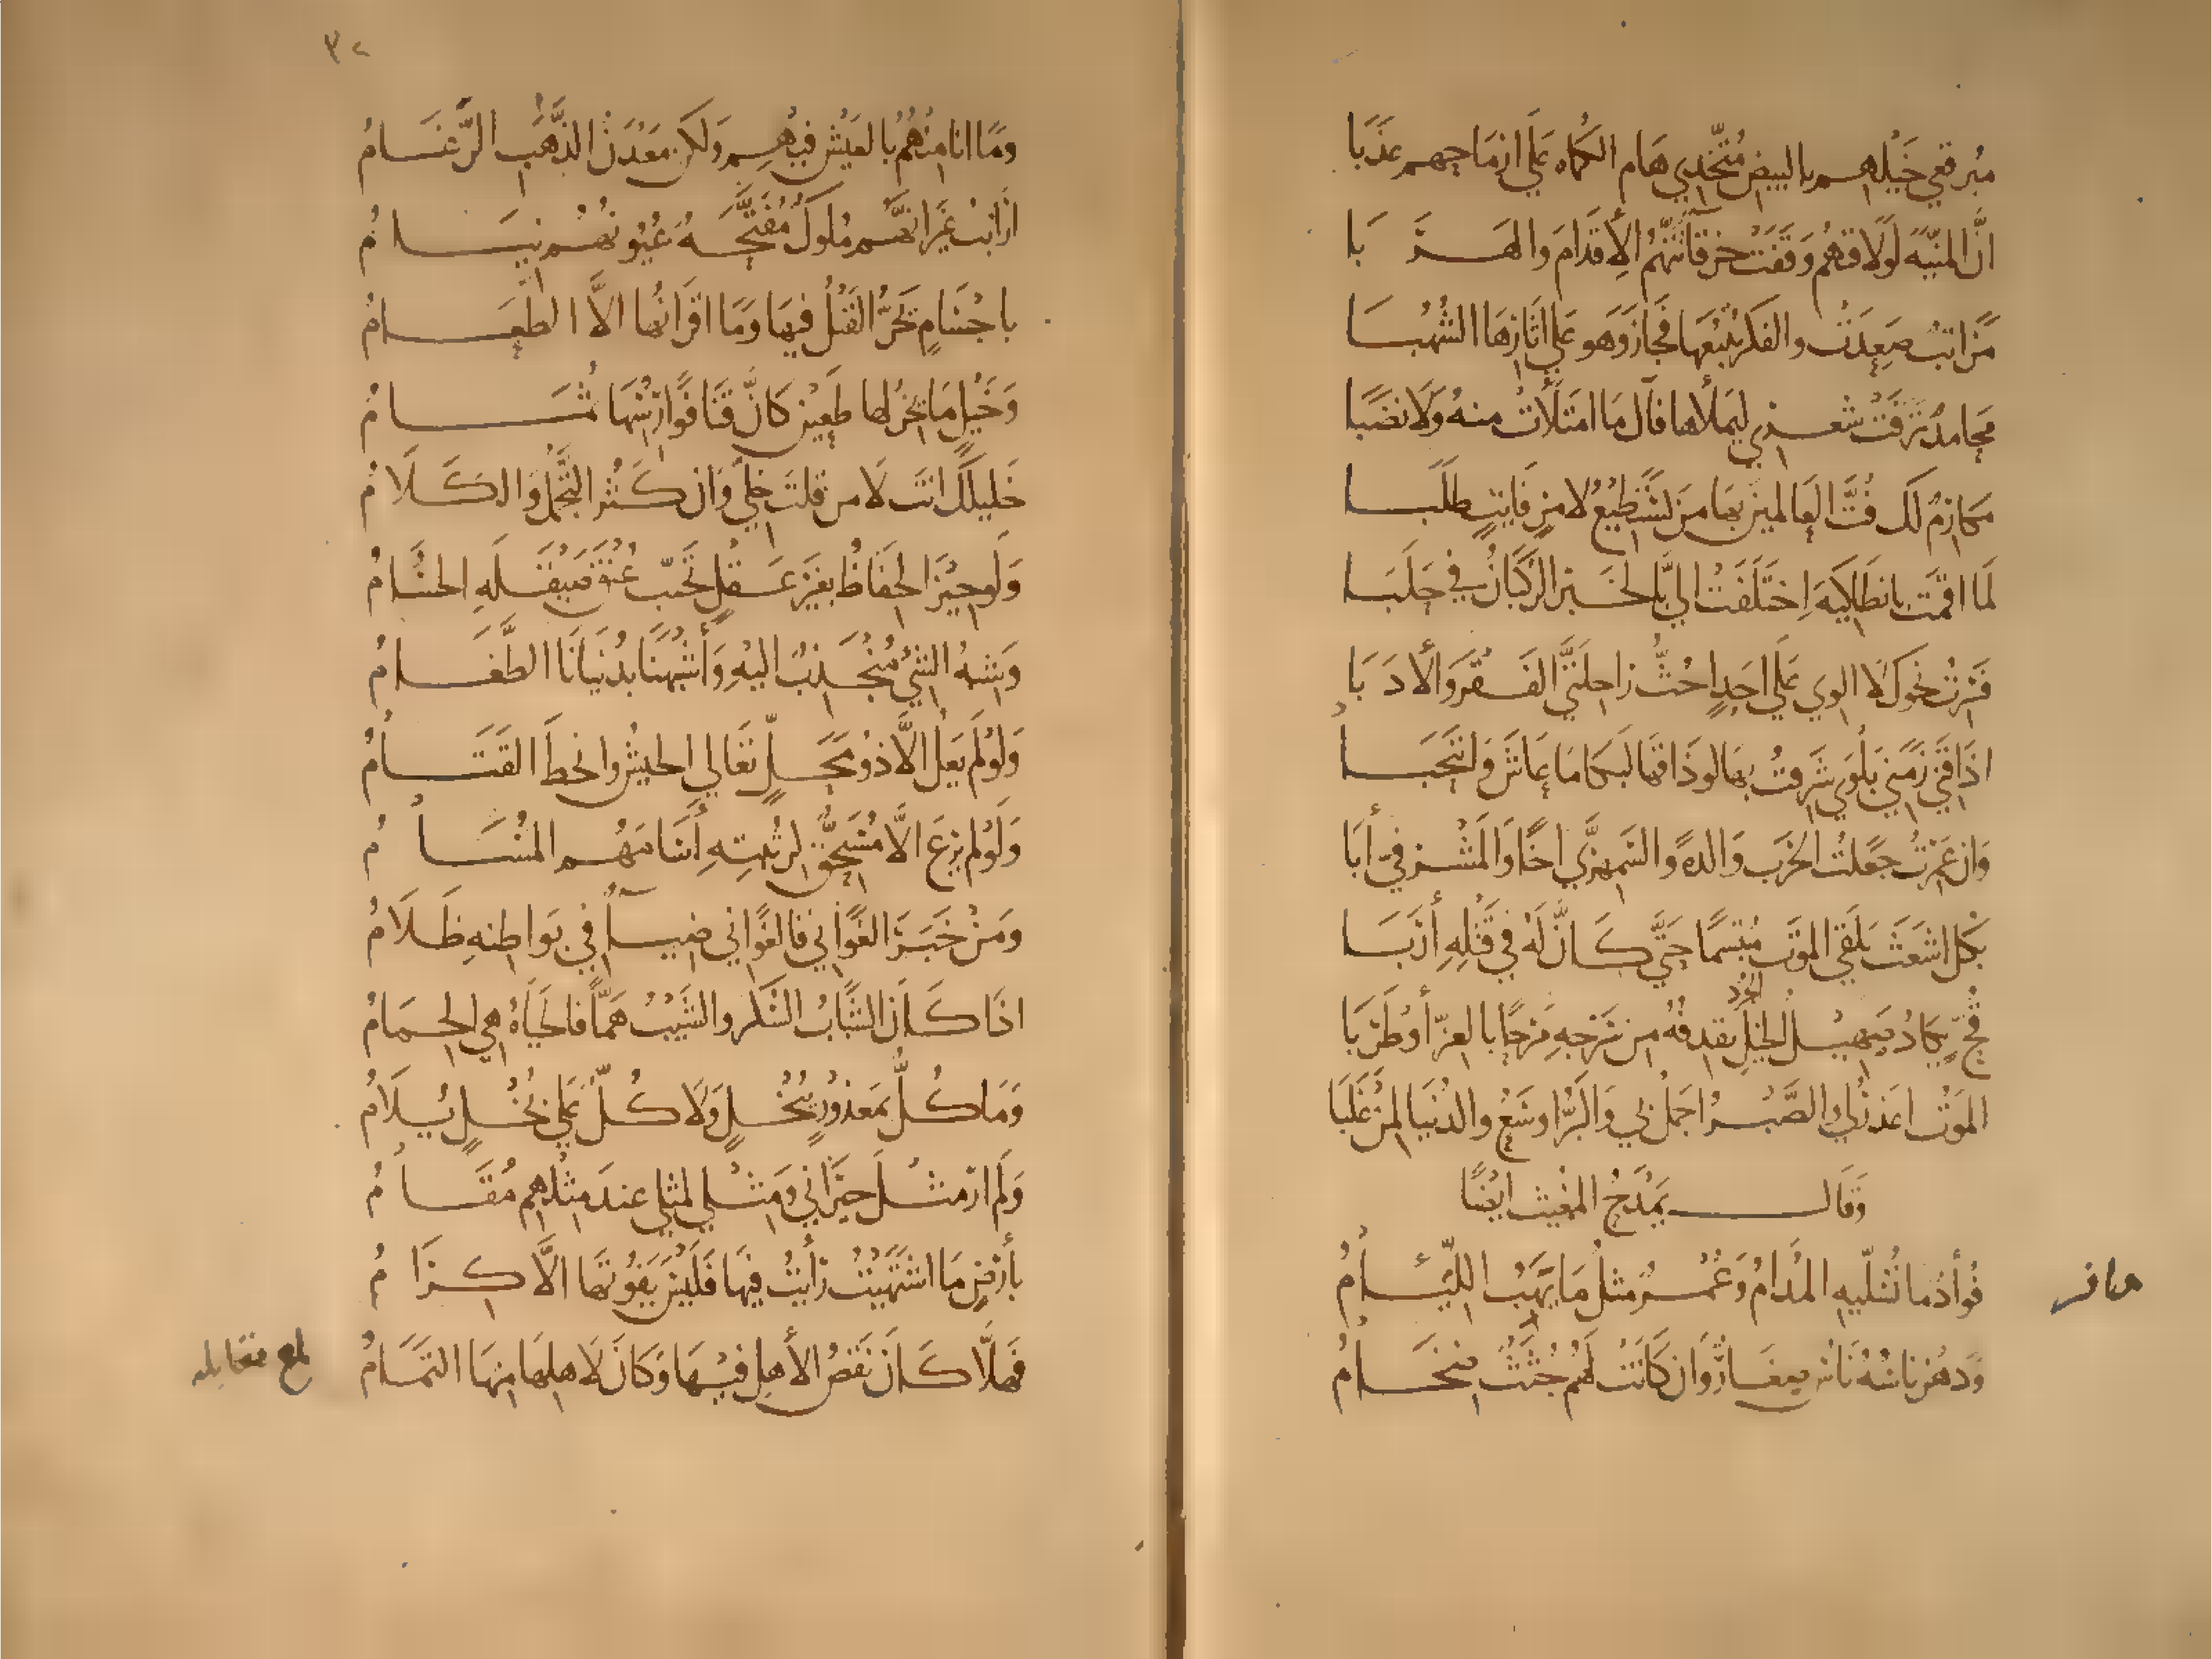 مُبرقعي خَيْلهم بالبيض مُتّخذي هَام الكُماه عَلَى ارمَاحهم عَذَبا
انَّ المنيّه لَو لاقتهُم وَقَفَت خرقاءَ تَتّهمُ الأِقدَامَ والهَرَبا
مَرَاتبٌ صَعِدَتْ والفكر يَتْبَعُهَا فجَازَ وَهو عَلى اثَارِهَا الشُهُبَا
مَحَامدٌ نَزَفَتْ شعْري ليَملأها فآل مَا امتَلأت منهُ وَلا نضَبَا
مَكارمٌ لَكَ فُتَّ العَالمينَ بهَا مَن يَسْتَطيعُ لامرٍ فَايتٍ طلَبَا
لَمّا اقمتَ بانطَاكيَه اِختَلَفَتْ اليَّ بالخَبرَ الرُكبَانُ في حَلَبَا
فَسِرتُ نحوَكَ لَا الوي عَلى احَدٍ احُثُّ رَاحلَتَيَّ الفَقْرَ وَالأدَبَا
اذَاقَني زَمَني بَلْوى شَرِقتُ بهَا لو ذَاقَهَا لَبَكا مَا عَاشَ وَانتَحَبَا
وَان عَمِرتُ جَعَلتُ الحَربَ وَالدةً والسَمهَريَّ اخًا وَالمَشْرفيّ أبَا
بكُل اشعَثَ يَلقَى الموَتَ مُبتسمًا حَتَّى كَانَّ لَهُ في قَتْلِهِ أرَبَا
قُحٍّ يكَادُ صَهيلُ الخَيلِ يَقذفُهُ من سَرجِهِ مَرحًا بالعزّ أو طَرَبَا
الجُرد
المَوْتُ اعذَرُ لي والصَّبْرُ اجمَلُ بي وَالبَرُّ اوسَعُ والدُنيَا لمَنْ غَلَبَا
وَقَال يَمْدَحُ المغيث ايْضًا
فُوأدٌ ما تُسَلّيهِ المُدَامُ وَعُمْرٌ مثلُ مَا يَهَبُ اللّئَامُ
وَدهْرٌ ناسُهُ نَاسٌ صِغَارٌ وَان كَانَتْ لَهُم جُثَثٌ ضِخَامُ
وَمَا انا منهُمُ بالعَيْش فيهِم وَلكن مَعْدَنُ الذَّهَبِ الرَّغَامُ
ارَانبُ غَيرَ انَّهُم مُلوكٌ مُفَتَّحَهٌ عُيُونهُم نيَامُ
باجْسَامٍ يَحَرُّ القَتْلُ فيهَا وَمَا اقرَانُها الاَّ الطَّعَامُ
وَخَيلٍ مَا يَخرُّ لها طَعِينٌ كَانَّ قَنَا فَوَارسُهَا ثُمَامُ
خَليلُكَ انتَ لَا من قلتَ خلّي وَان كَثُر التَّجَمّلُ وَالكَلَامُ
وَلَو حِيْزَ الحِفَاظُ بغَير عَقْلٍ تجَنّبَ عُنْقَ صَيقَلَهِ الحُسَامُ
وَشبهُ الشيْءِ مُنجَذبٌ اليْهِ وَأشبَهُنَا بدُنيَانَا الطَّغَامُ
وَلوْلَم يَعْلُ الَّا ذو مَحَلٍّ تَعَالى الجيْشُ وانحَطَ القَتَامُ
وَلوْلم يرعَ الَّا مُستَحقٌّ لرُتبَتِهِ أَسَامَهُم المُسَامُ
وَمَنْ خَبَرَ الغَوَاني فَالغَوَاني ضيَاءٌ في بَوَاطنهِ ظَلَامُ
اذَا كَانَ الشّبَابُ السُّكرَ والشَيْبُ هَمًّا فَالحَيَاةُ هي الحِمَامُ
وَمَا كُلٌّ بمَعذُورٍ ببُخْلٍ وَلَا كُلٌّ عَلى بُخلٍ يُلَامُ
وَلَم ارَ مثْلَ جِيرَاني وَمثْلي لمثْلي عندَ مِثْلهِم مُقَامُ
بأرْضٍ مَا اشتَهَيْتَ رَأيْتَ فيَهَا فَلَيْسَ يَفُوتُهَا الَّا كرَامُ
فَهَلَّا كَانَ نَقصُ الأهل فيْهَا وَكَانَ لَاهلهَا منهَا التمَامُ
بلغ مقابله